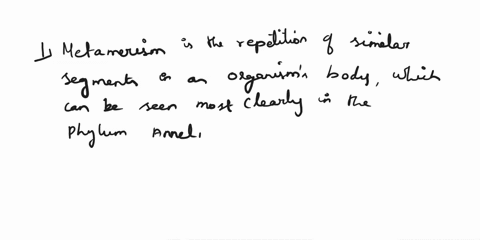 1) Metamerism is the repetition of similar
segments in an organism's body, which
can be seen most clearly in the
Phylum Annel